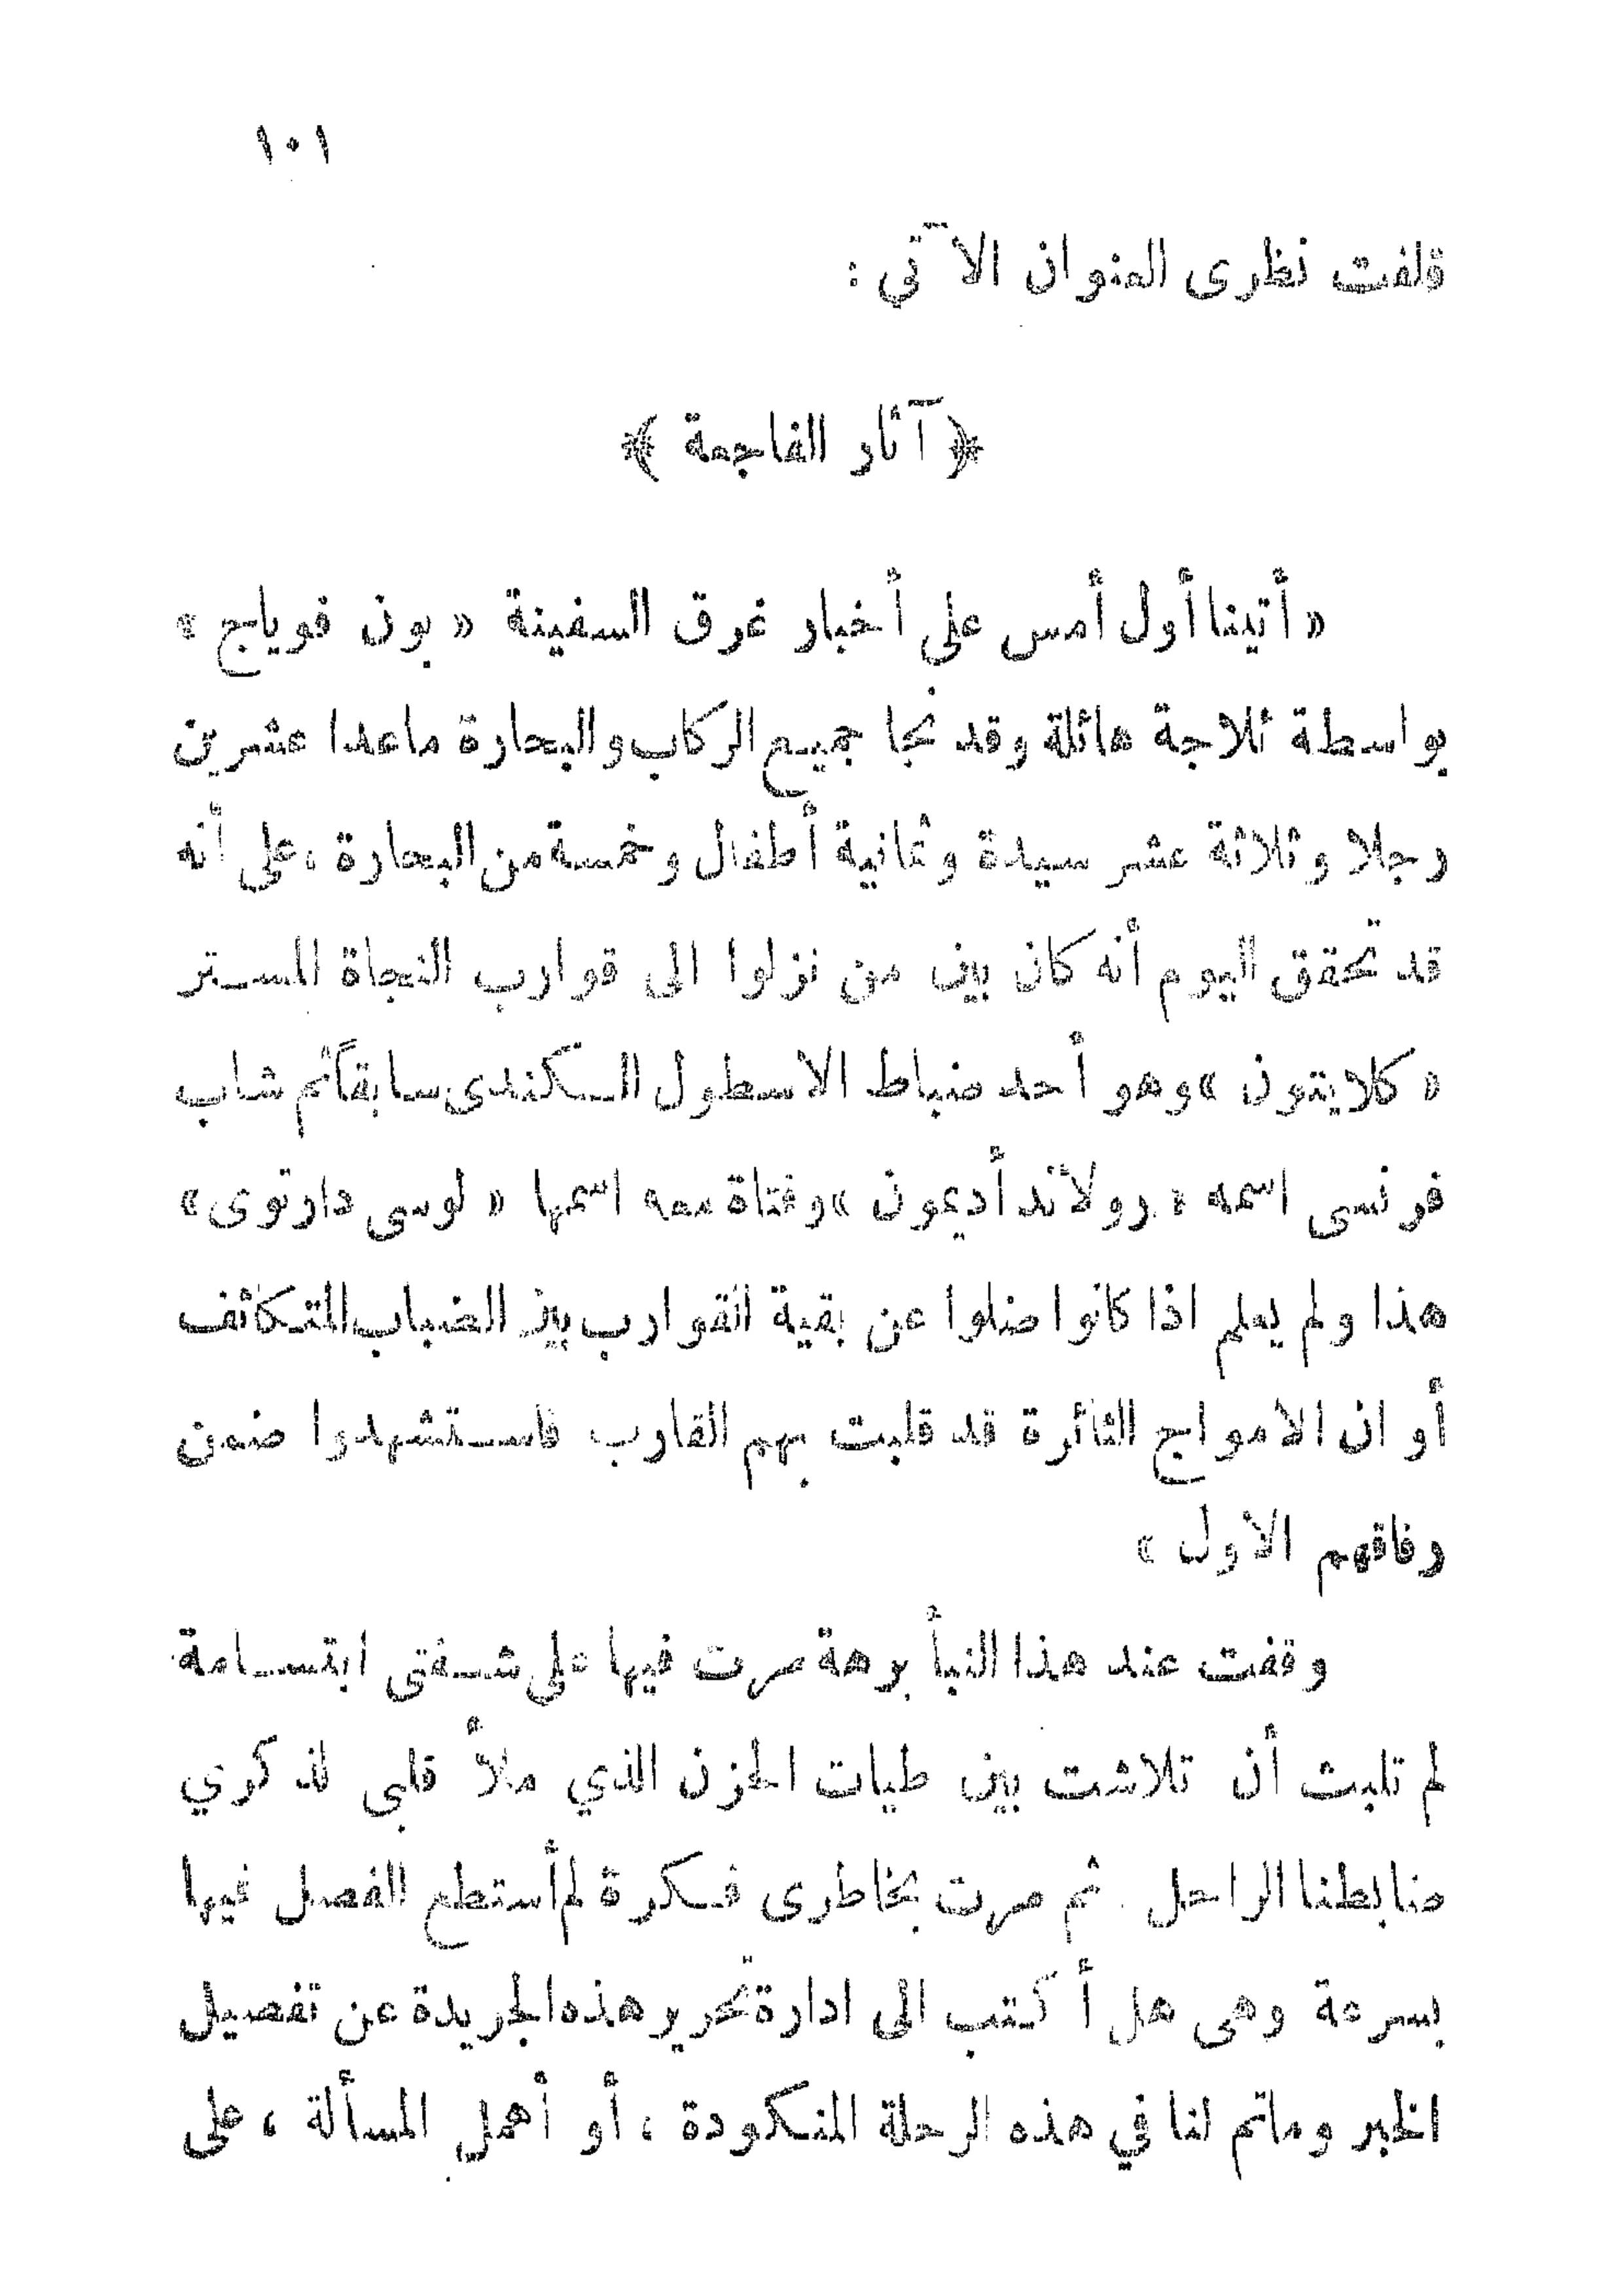 ١٠١
فلفت نظرى العنوان الآتي :
﴿ آثار الفاجعة ﴾
« أتينا أول أمس على أخبار غرق السفينة « بون فوياج »
بواسطة ثلاجة هائلة وقد نجا جميع الركاب والبحارة ماعدا عشرين
رجلا وثلاثة عشر سيدة وثمانية أطفال وخمسة من البحارة ، على أنه
قد تحقق اليوم أنه كان بين من نزلوا الى قوارب النجاة المستر
« كلايتون » وهو أحد ضباط الاسطول السكندى سابقاً ثم شاب
فرنسى اسمه « رولاند أديمون » وفتاة معه اسمها « لوسى دارتوى »
هذا ولم يعلم اذا كانوا ضلوا عن بقية القوارب بين الضباب المتكاثف
أو ان الامواج الثائرة قد قلبت بهم القارب فاستشهدوا ضمن
رفاقهم الاول »
وقفت عند هذا النبأ برهة مرت فيها على شفتى ابتسامة
لم تلبث أن تلاشت بين طيات الحزن الذي ملأ قلبى لذكري
ضابطنا الراحل . ثم مرت بخاطرى فكرة لم أستطع الفصل فيها
بسرعة وهى هل أكتب الى ادارة تحرير هذه الجريدة عن تفصيل
الخبر وماتم لنا في هذه الرحلة المنكودة ، أو أهمل المسألة ، على